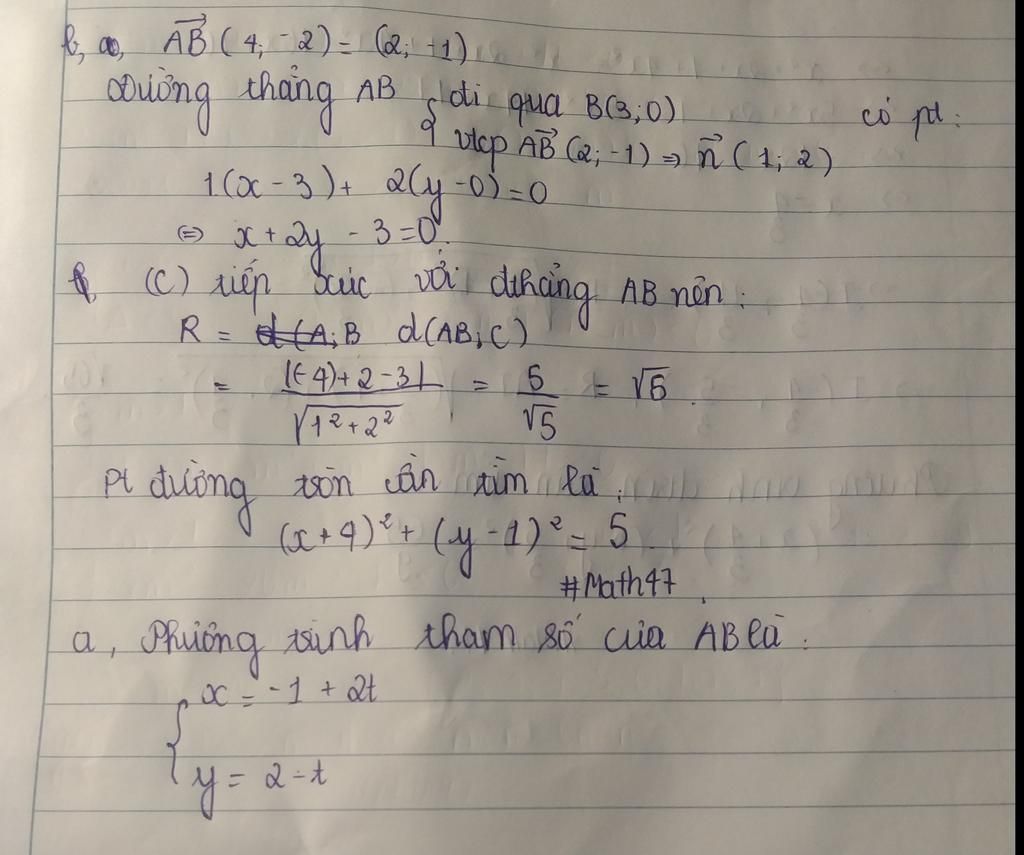 b, a, AB→ (4; -2) = (2; -1)
Đường thẳng AB { đi qua B(3; 0) có pt:
vtcp AB→ (2; -1) => n→ (1; 2)
1(x - 3) + 2(y - 0) = 0
<=> x + 2y - 3 = 0.
b, (C) tiếp xúc với đthẳng AB nên:
R = d(A; B d(AB; C)
= |(-4) + 2 - 3| / √(1² + 2²) = 5/√5 = √5.
Pt đường tròn cần tìm là:
(x + 4)² + (y - 1)² = 5
#Math47.
a, Phương trình tham số của AB là:
{ x = -1 + 2t
y = 2 - t